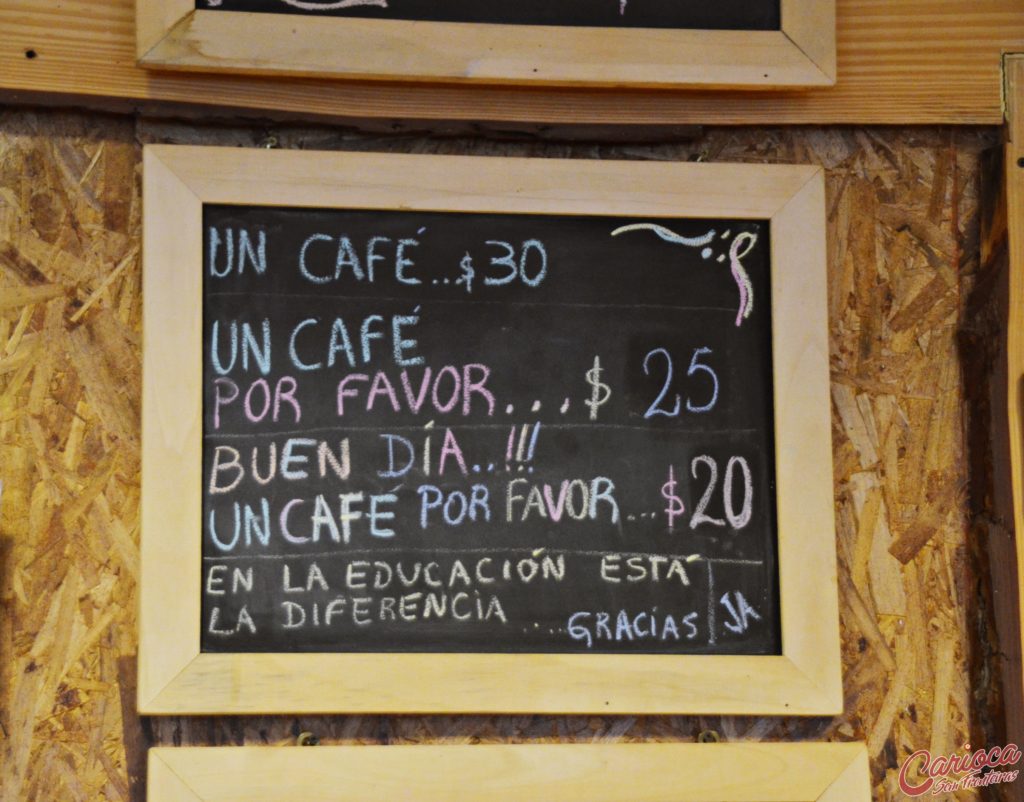 UN CAFÉ...$30
UN CAFÉ
POR FAVOR....$ 25
BUEN DÍA..!!!
UN CAFÉ POR FAVOR...$20
EN LA EDUCACIÓN ESTÁ
LA DIFERENCIA ....GRACIAS JA
Carioca
Sem Fronteiras